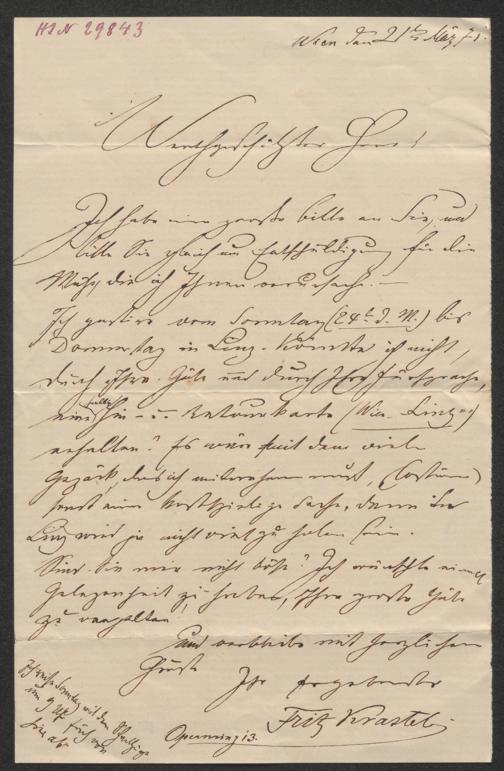 HIN 29843
Wien den 21ten März 71.
Werthgeschätzter Herr!
Ich habe eine große Bitte an Sie, und
bitte Sie gleich um Entschuldigung für die
Mühe, die ich Ihnen verursache. —
Ich gastire vom Sonntag (24t. d. M.) bis
Donnerstag in Linz. Könnte ich nicht,
durch Ihre Güte und durch Ihre Fürsprache,
eine halbe Hin- u. Retourkarte (Wien Linz)
erhalten? Es wäre mit dem vielen
Gepäck, das ich mitnehmen muß, (Costüme)
sonst eine kostspielige Sache, denn in
Linz wird ja nicht viel zu holen sein.
Sind Sie mir nicht böse? Ich wünschte einmal
Gelegenheit zu haben, Ihre große Güte
zu vergelten
und verbleibe mit herzlichem
Gruße
Ihr ergebenster
Fritz Krastel
Opernring 13.
Ich reise Sonntag mit dem
um 9 Uhr früh von
hier ab.